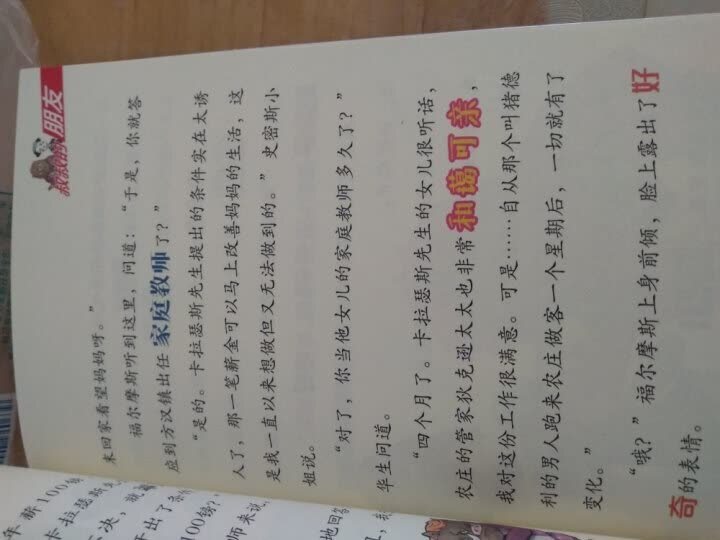 叔叔的朋友
来回家看望妈妈呀。”
福尔摩斯听到这里，问道：“于是，你就答
应到方汉镇出任家庭教师了？”
“是的。卡拉瑟斯先生提出的条件实在太诱
人了，那一笔薪金可以马上改善妈妈的生活，这
是我一直以来想做但又无法做到的。”史密斯小
姐说。
“对了，你当他女儿的家庭教师多久了？”
华生问道。
“四个月了。卡拉瑟斯先生的女儿很听话，
农庄的管家狄克逊太太也非常和蔼可亲，
我对这份工作很满意。可是……自从那个叫猪德
利的男人跑来农庄做客一个星期后，一切就有了
变化。”
“哦？”福尔摩斯上身前倾，脸上露出了好
奇的表情。
年薪100
卡拉瑟斯
决，就
开出了
100镑？
师来说
地回答